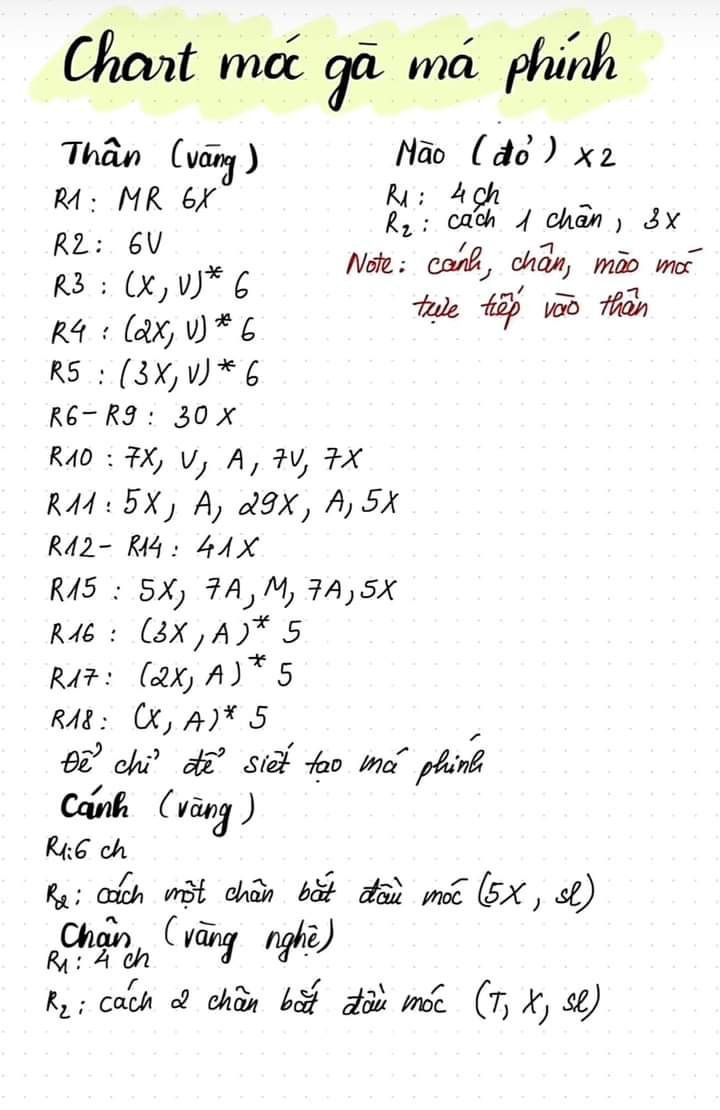 Chart móc gà má phính
Thân (vàng)
R1: MR 6X
R2: 6V
R3: (X, V)* 6
R4: (2X, V)* 6
R5: (3X, V)* 6
R6-R9: 30X
R10: 7X, V, A, 7V, 7X
R11: 5X, A, 29X, A, 5X
R12-R14: 41X
R15: 5X, 7A, M, 7A, 5X
R16: (3X, A)* 5
R17: (2X, A)* 5
R18: (X, A)* 5
Để chỉ để siết tạo má phính
Cánh (vàng)
R1: 6 ch
R2: cách một chân bắt đầu móc (5X, sl)
Chân (vàng nghệ)
R1: 4 ch
R2: cách 2 chân bắt đầu móc (T, X, sl)
Mào (đỏ) x2
R1: 4 ch
R2: cách 1 chân, 3X
Note: cánh, chân, mào móc
trực tiếp vào thân